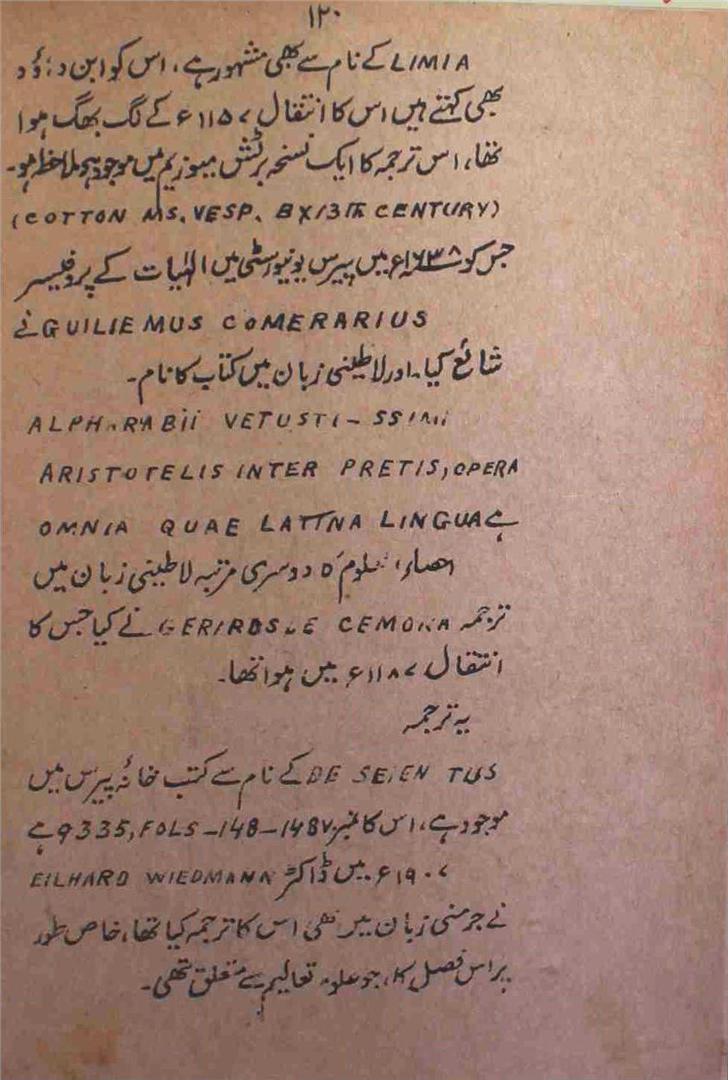 ۱۲۰
LIMIA کے نام سے بھی مشہور ہے، اس کو ابن داؤد
بھی کہتے ہیں اس کا انتقال ۱۱۵۷ء کے لگ بھگ ہوا
تھا، اس ترجمہ کا ایک نسخہ برٹش میوزیم میں موجود ہے ملاحظہ ہو۔
(COTTON MS. VESP. BX/13Th CENTURY)
جس کو ۱۶۳۸ء میں پیرس یونیورسٹی میں الٰہیات کے پروفیسر
GUILIEMUS COMERARIUS نے
شائع کیا۔ اور لاطینی زبان میں کتاب کا نام۔
ALPHARABii VETUSTi-SSiMii
ARISTOTELIS INTER PRETIS, OPERA
OMNIA QUAE LATTNA LINGUA ہے
احصاء العلوم کا دوسری مرتبہ لاطینی زبان میں
ترجمہ CEMONA نے کیا جس کا
انتقال ۱۱۸۷ء میں ہوا تھا۔
یہ ترجمہ
DE SEIEN TUS کے نام سے کتب خانہ پیرس میں
موجود ہے، اس کا نمبر 9335, FOLS-148-148V ہے
۱۹۰۷ء میں ڈاکٹر EILHARD WIEDMANN
نے جرمنی زبان میں بھی اس کا ترجمہ کیا تھا، خاص طور
پر اس فصل کا، جو علوم تعالیم سے متعلق تھی۔